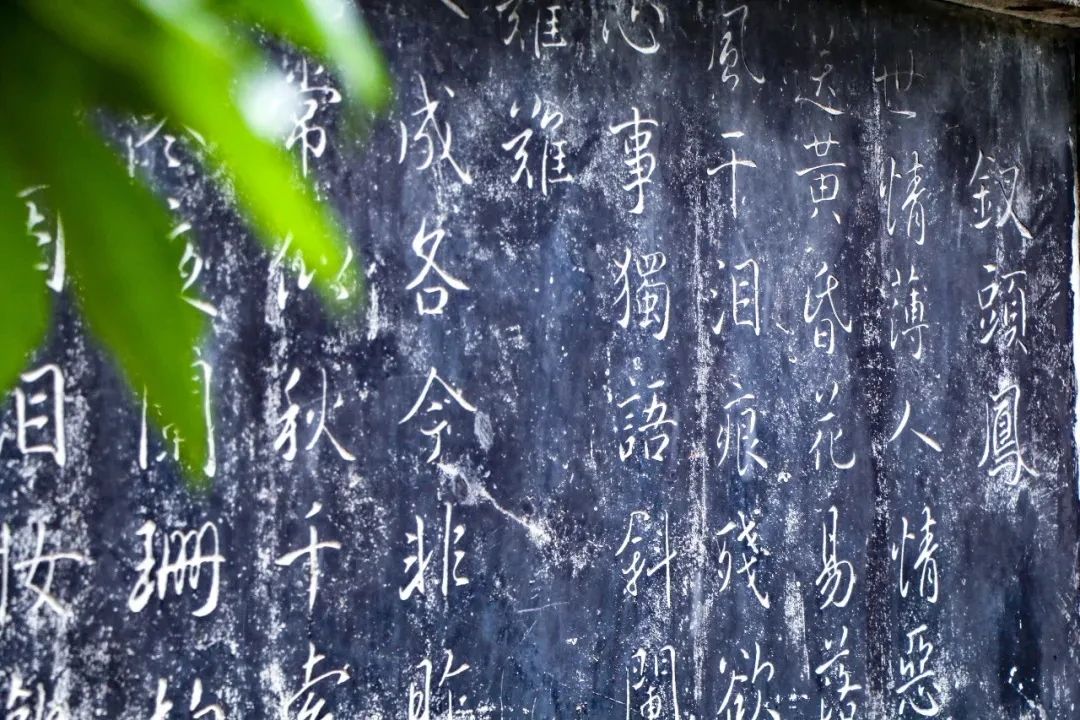 釵頭鳳
世情薄人情惡
送黃昏花易落
風干泪痕殘欲
心事獨語斜闌
難難
成各今非昨
常似秋千索
夜闌珊
泪妆